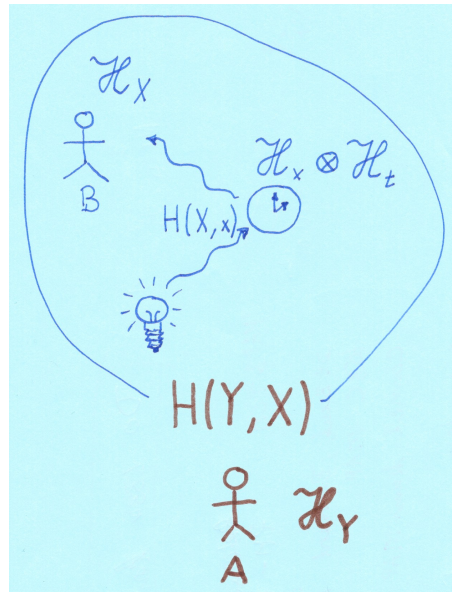 ℋ_X
B
ℋ_x ⊗ ℋ_t
H(X,x)
H(Y,X)
ℋ_Y
A